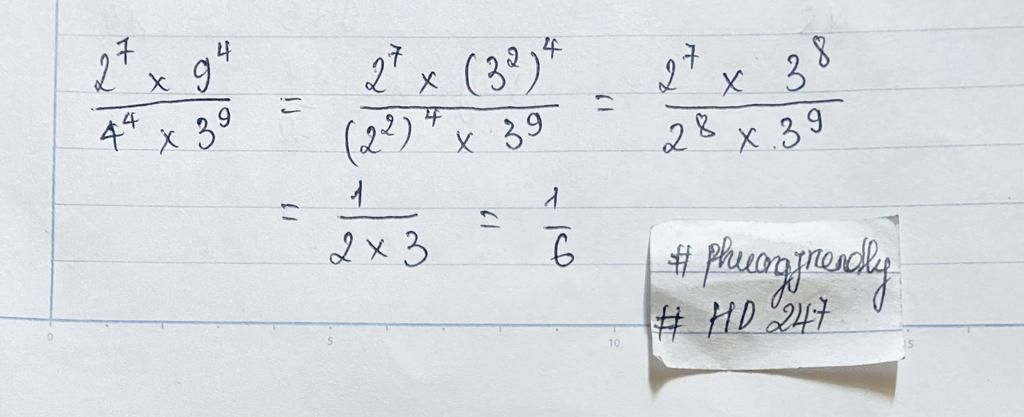 2⁷ × 9⁴ / 4⁴ × 3⁹ = 2⁷ × (3²)⁴ / (2²)⁴ × 3⁹ = 2⁷ × 3⁸ / 2⁸ × 3⁹
= 1 / 2 × 3 = 1 / 6
# phuongfriendly
# HD 247
0 5 10 15